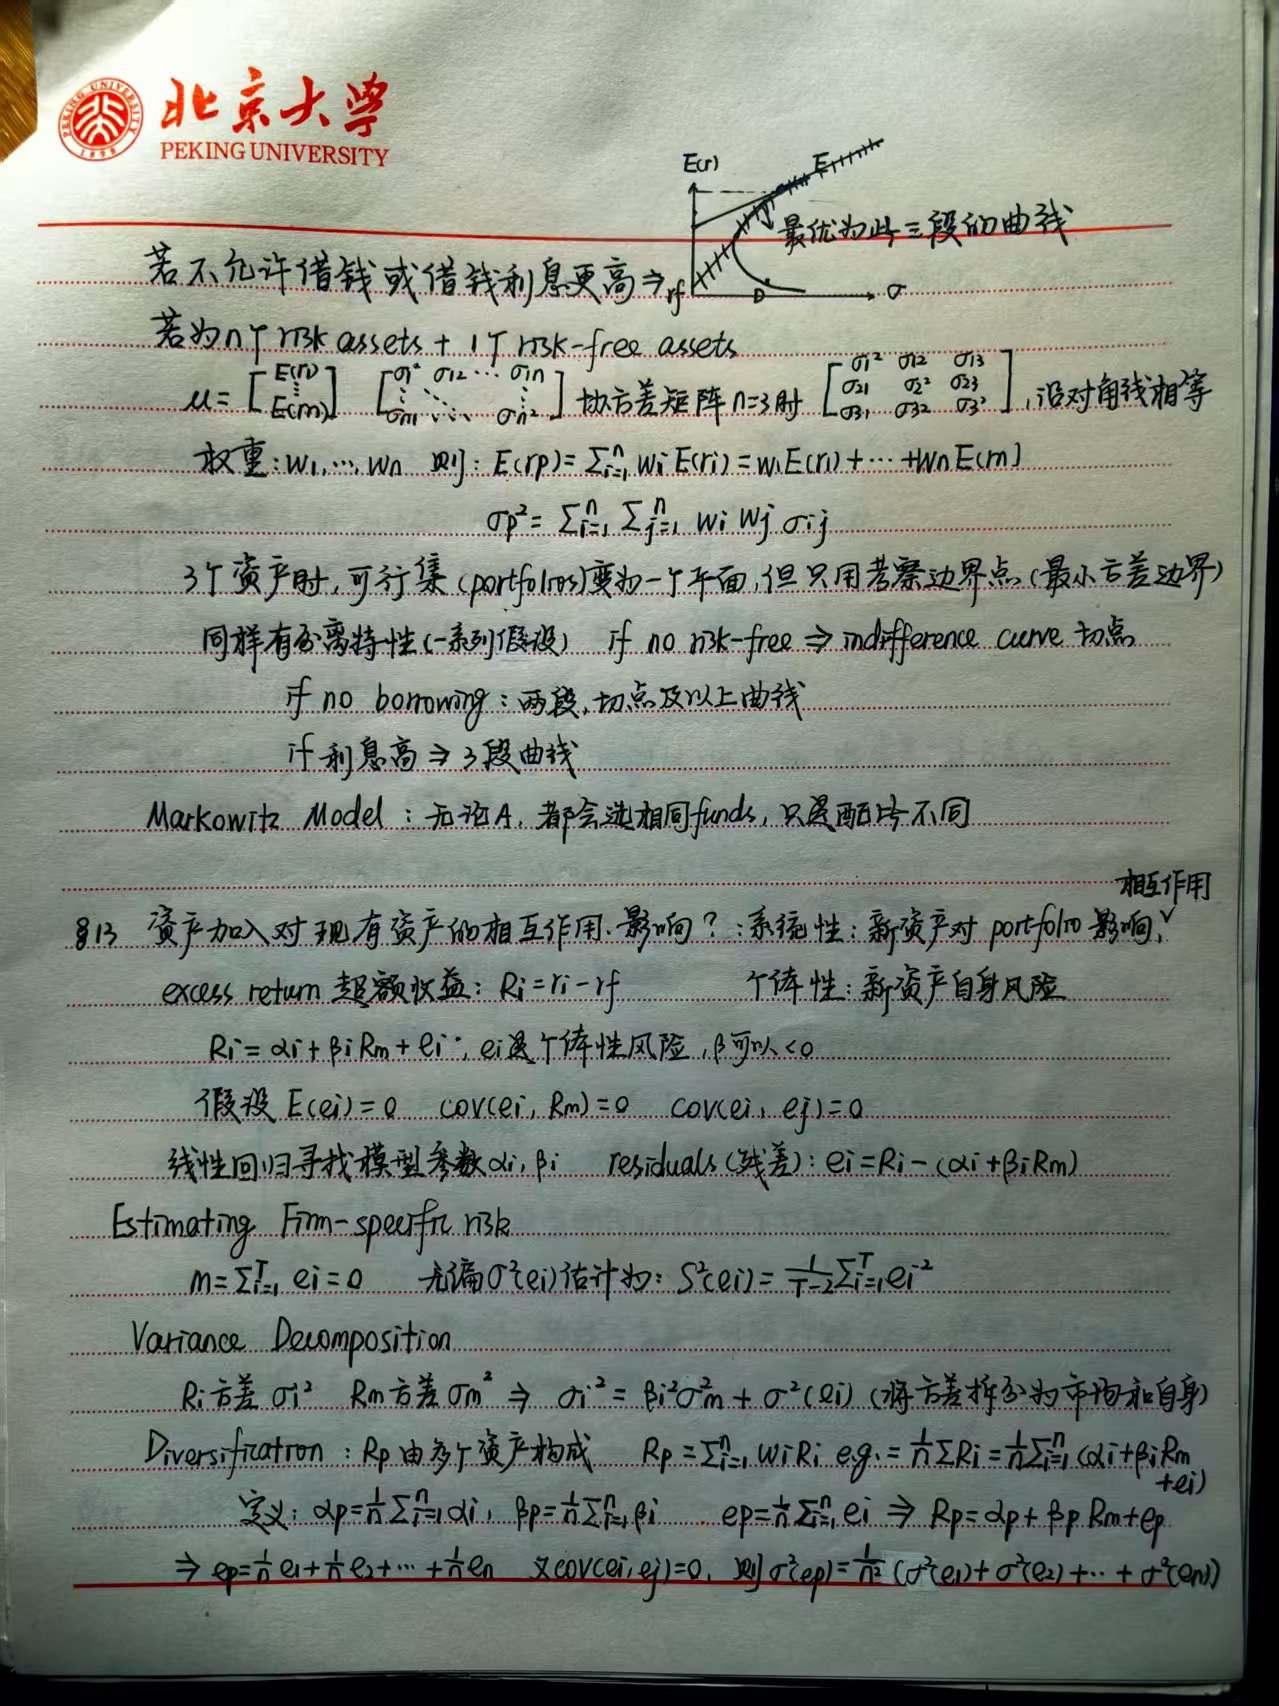 北京大学
PEKING UNIVERSITY
1898
E(r)
E
最优为此三段的曲线
若不允许借钱或借钱利息更高⇒
rf
D
σ
若为n个risk assets + 1个risk-free assets
μ = [E(r1) ⋮ E(rn)] [σ1² σ12 ⋯ σ1n ⋮ ⋱ ⋮ σn1 ⋯ σn²] 协方差矩阵 n=3时 [σ1² σ12 σ13 σ21 σ2² σ23 σ31 σ32 σ3²], 沿对角线相等
权重: w1, ⋯, wn 则: E(rp) = Σⁿᵢ₌₁ wi E(ri) = w1E(r1) + ⋯ + wnE(rn)
σp² = Σⁿᵢ₌₁ Σⁿⱼ₌₁ wi wj σij
3个资产时, 可行集 (portfolios) 变为一个平面, 但只用考察边界点 (最小方差边界)
同样有分离特性 (一系列假设) if no risk-free ⇒ indifference curve 切点
if no borrowing: 两段, 切点及以上曲线
if 利息高 ⇒ 3段曲线
Markowitz Model: 无论A, 都会选相同funds, 只是配比不同
相互作用
§13 资产加入对现有资产的相互作用、影响?: 系统性: 新资产对 portfolio 影响,
excess return 超额收益: Ri = ri - rf 个体性: 新资产自身风险
Ri = αi + βi Rm + ei, ei是个体性风险, β可以<0
假设 E(ei) = 0 cov(ei, Rm) = 0 cov(ei, ej) = 0
线性回归寻找模型参数αi, βi residuals (残差): ei = Ri - (αi + βiRm)
Estimating Firm-specific risk
m = Σᵀᵢ₌₁ ei = 0 无偏σ²(ei)估计为: S²(ei) = 1/(T-2) Σᵀᵢ₌₁ ei²
Variance Decomposition
Ri方差 σi² Rm方差 σm² ⇒ σi² = βi²σ²m + σ²(ei) (将方差拆分为市场和自身)
Diversification: Rp由多个资产构成 Rp = Σⁿᵢ₌₁ wiRi e.g. = 1/n ΣRi = 1/n Σⁿᵢ₌₁ (αi + βiRm + ei)
定义: αp = 1/n Σⁿᵢ₌₁ αi, βp = 1/n Σⁿᵢ₌₁ βi ep = 1/n Σⁿᵢ₌₁ ei ⇒ Rp = αp + βp Rm + ep
⇒ ep = 1/n e1 + 1/n e2 + ⋯ + 1/n en 又cov(ei, ej) = 0, 则σ²(ep) = 1/n² (σ²(e1) + σ²(e2) + ⋯ + σ²(en))